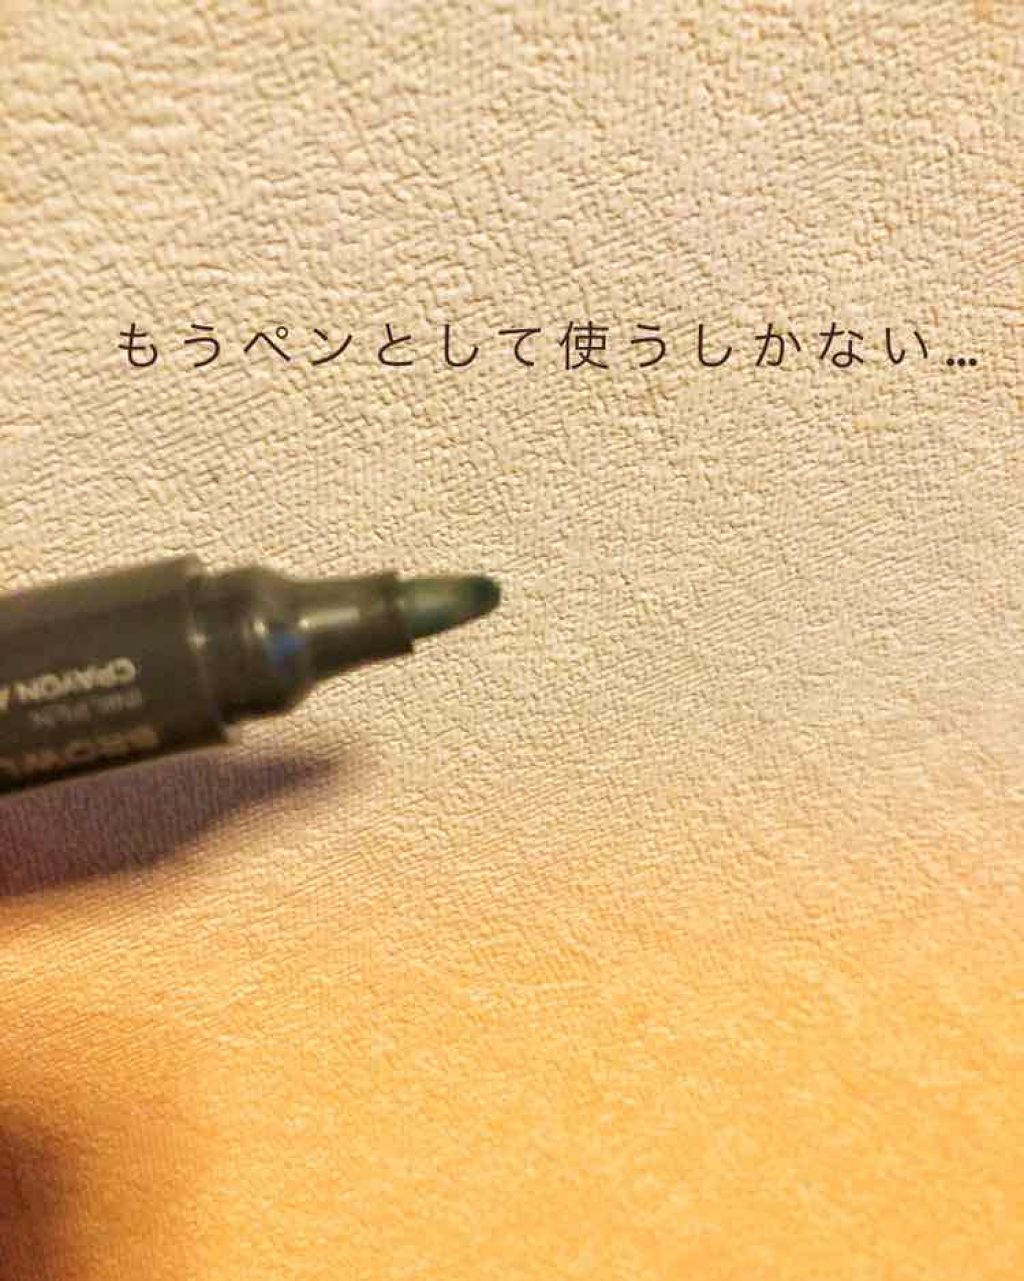 もうペンとして使うしかない…
CRAYON